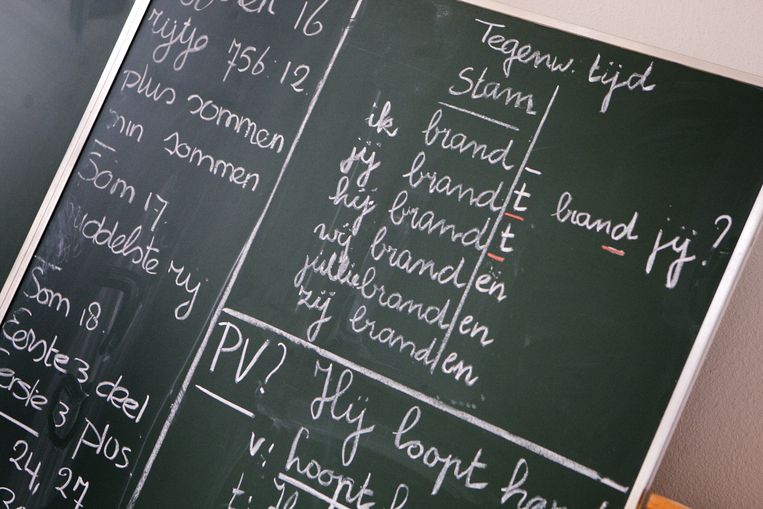 16
rijtje 756:12
plus sommen
min sommen
Som 17.
middelste rij
Som 18.
Eerste 3 deel
Eerste 3 plus
24, 27
Tegenw. tijd
Stam
ik brand –
jij brandt brand jij?
hij brandt
wij branden
jullie branden
zij branden
PV? Hij loopt
v: hoopt
t: